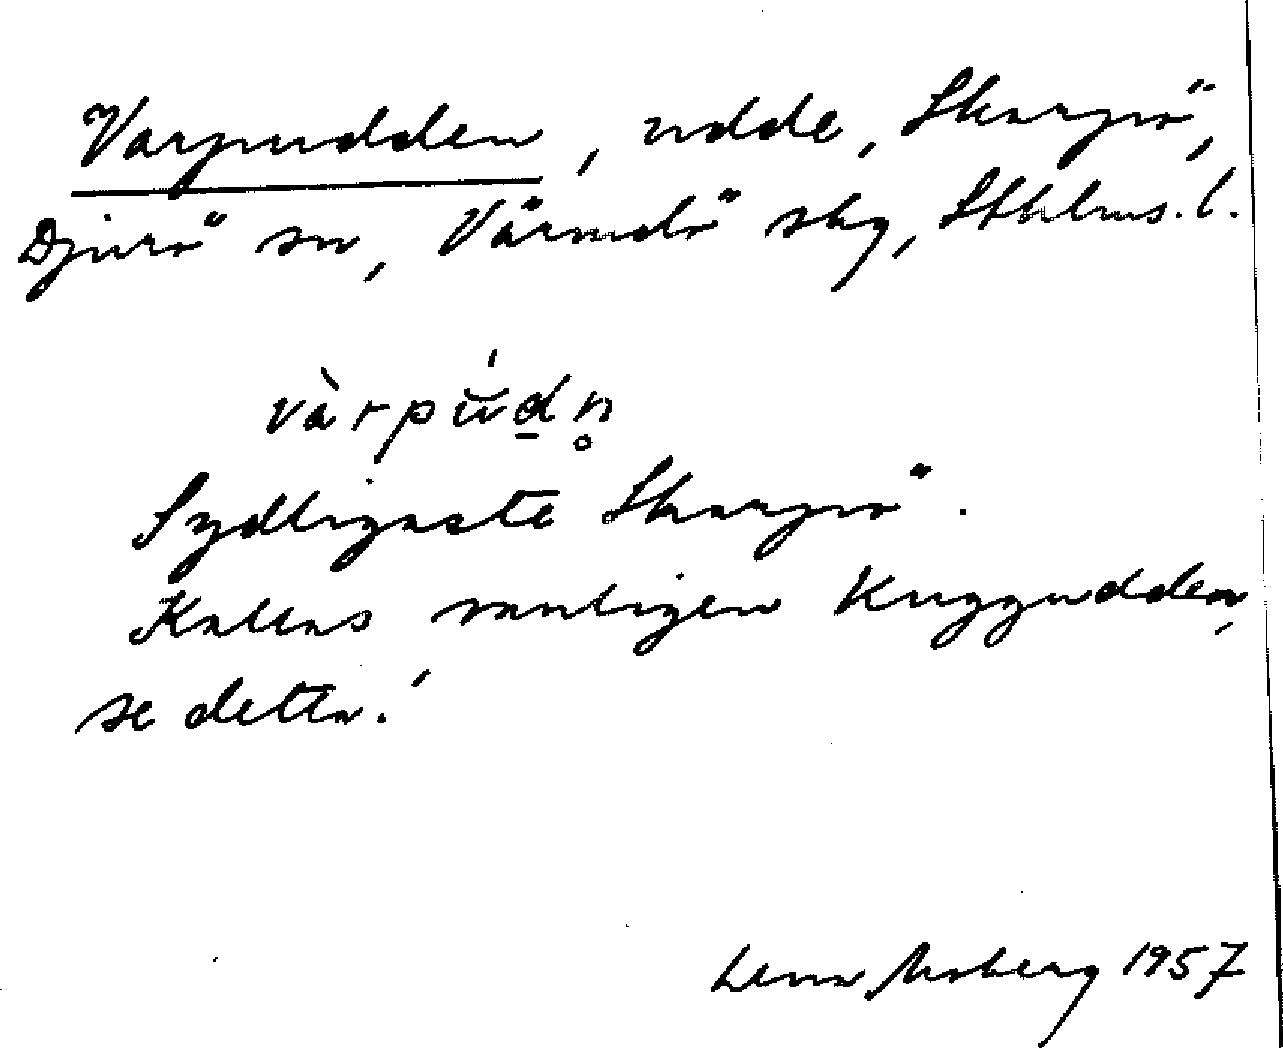 Varpudden, udde, Skarpö,
Djurö sn, Värmdö skg, Sthlms. l.
vàrpúdn̥
Sydligaste Skarpö.
Kallas vanligen Kuggudden,
se detta!
Lena Moberg 1957